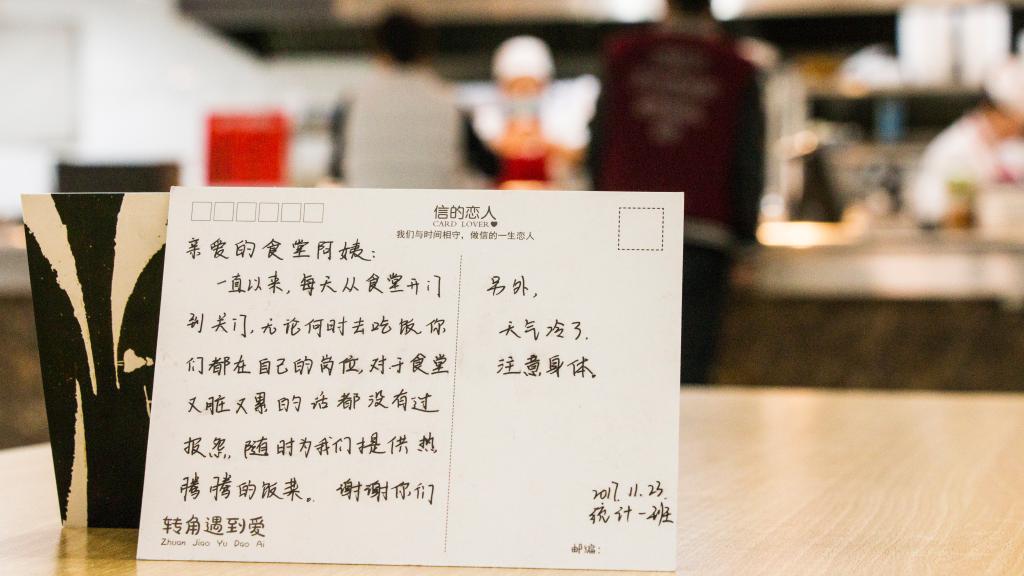 信的恋人
CARD LOVER
我们与时间相守，做信的一生恋人
亲爱的食堂阿姨：
一直以来，每天从食堂开门
到关门，无论何时去吃饭你
们都在自己的岗位，对于食堂
又脏又累的活都没有过
报怨，随时为我们提供热
腾腾的饭菜。谢谢你们
转角遇到爱
Zhuan Jiao Yu Dao Ai
另外，
天气冷了，
注意身体。
2017.11.23.
统计一班
邮编：